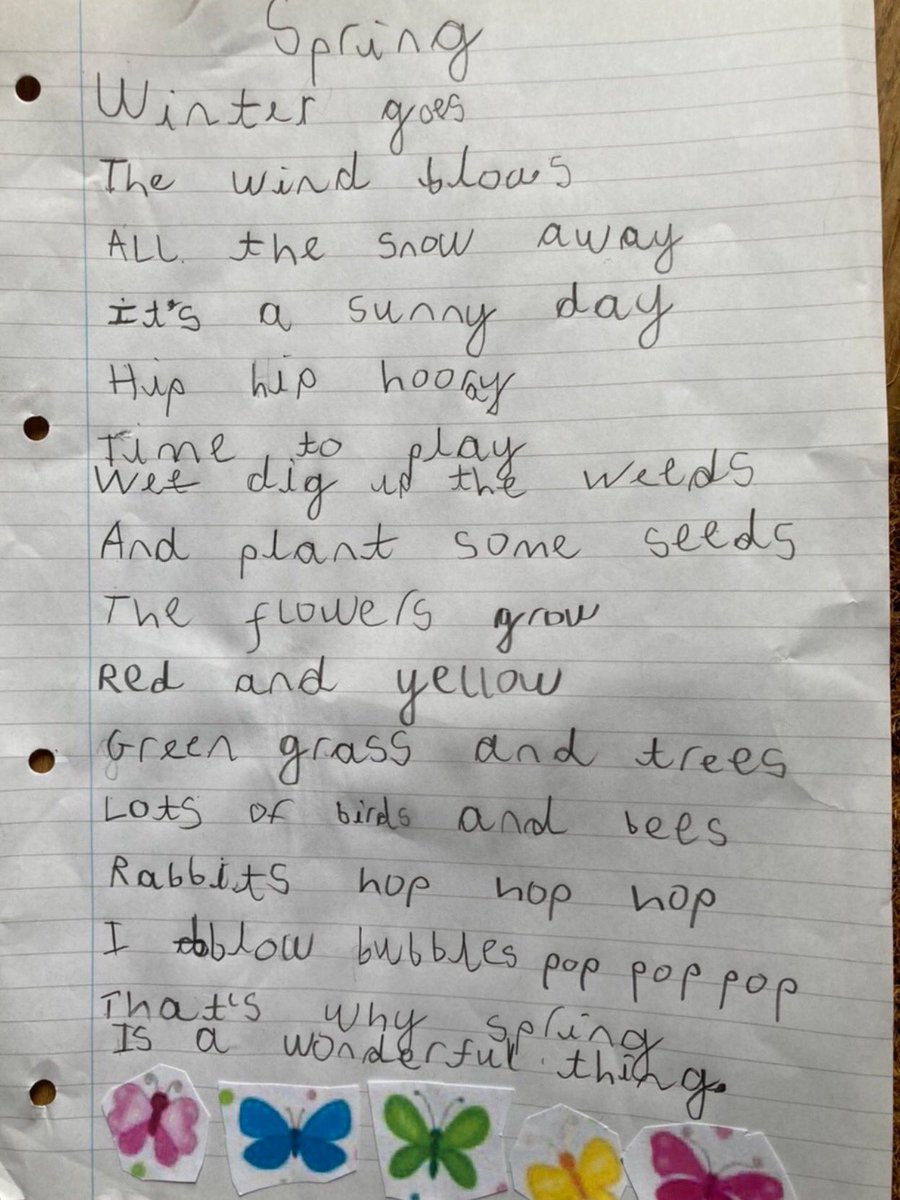 Spring
Winter goes
The wind blows
ALL the snow away
it's a sunny day
Hip hip hooray
Time to play
Wee dig up the weeds
And plant some seeds
The flowers grow
Red and yellow
Green grass and trees
Lots of birds and bees
Rabbits hop hop hop
I blow bubbles pop pop pop
That's why spring
Is a wonderful thing.